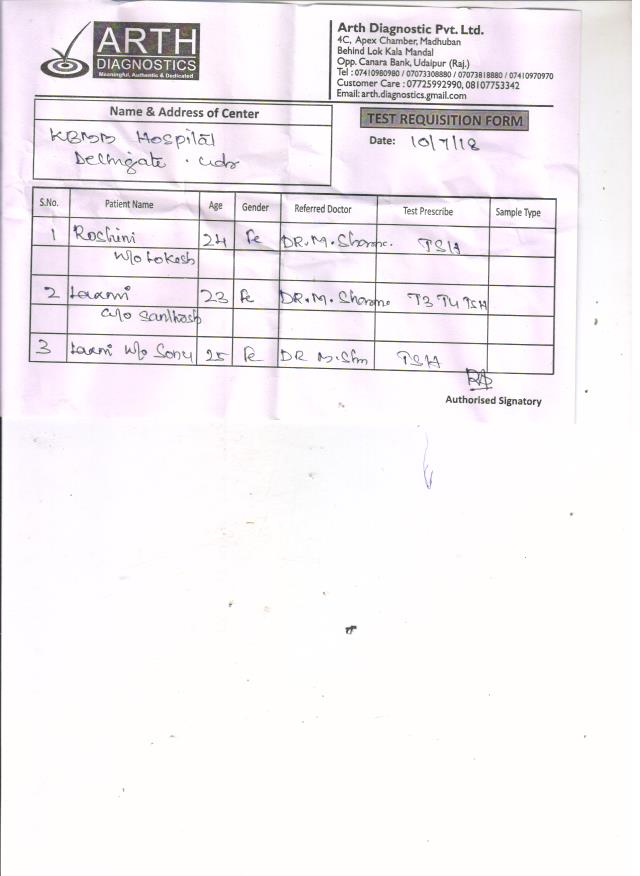 ARTH
DIAGNOSTICS
Meaningful, Authentic & Dedicated
Arth Diagnostic Pvt. Ltd.
4C, Apex Chamber, Madhuban
Behind Lok Kala Mandal
Opp. Canara Bank, Udaipur (Raj.)
Tel : 07410980980 / 07073308880 / 07073818880 / 07410970970
Customer Care : 07725992990, 08107753342
Email: arth.diagnostics.gmail.com
Name & Address of Center
Hospital
Delhigate . udr
TEST REQUISITION FORM
Date: 10/7/18
S.No. Patient Name Age Gender Referred Doctor Test Prescribe Sample Type
1 Roshini 24 Fe DR. M. Sharma. TSH
W/o Lokesh
2 Laxmi 23 Fe DR. M. Sharma T3 T4 TSH
Santhosh
3 Laxmi W/o Sonu 25 Fe DR M. TSH
Authorised Signatory